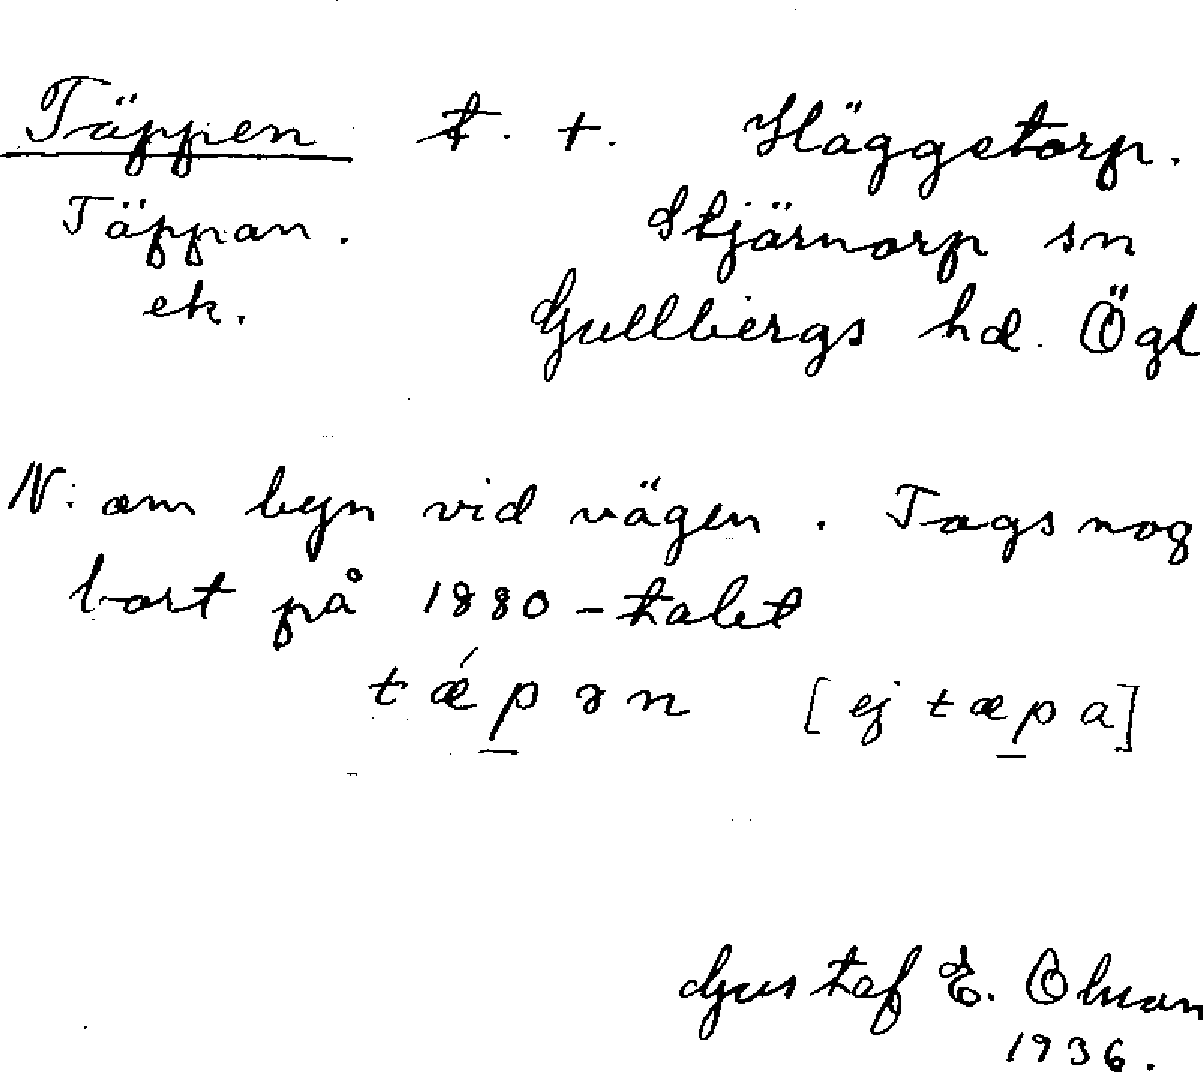 Täppen t. +. Häggetorp.
Täppan. Stjärnorp sn
ek. Gullbergs hd. Ögl
N: om byn vid vägen. Togs nog
bort på 1880-talet
tǽpən [ej tæpa]
Gustaf E. Olson
1936.